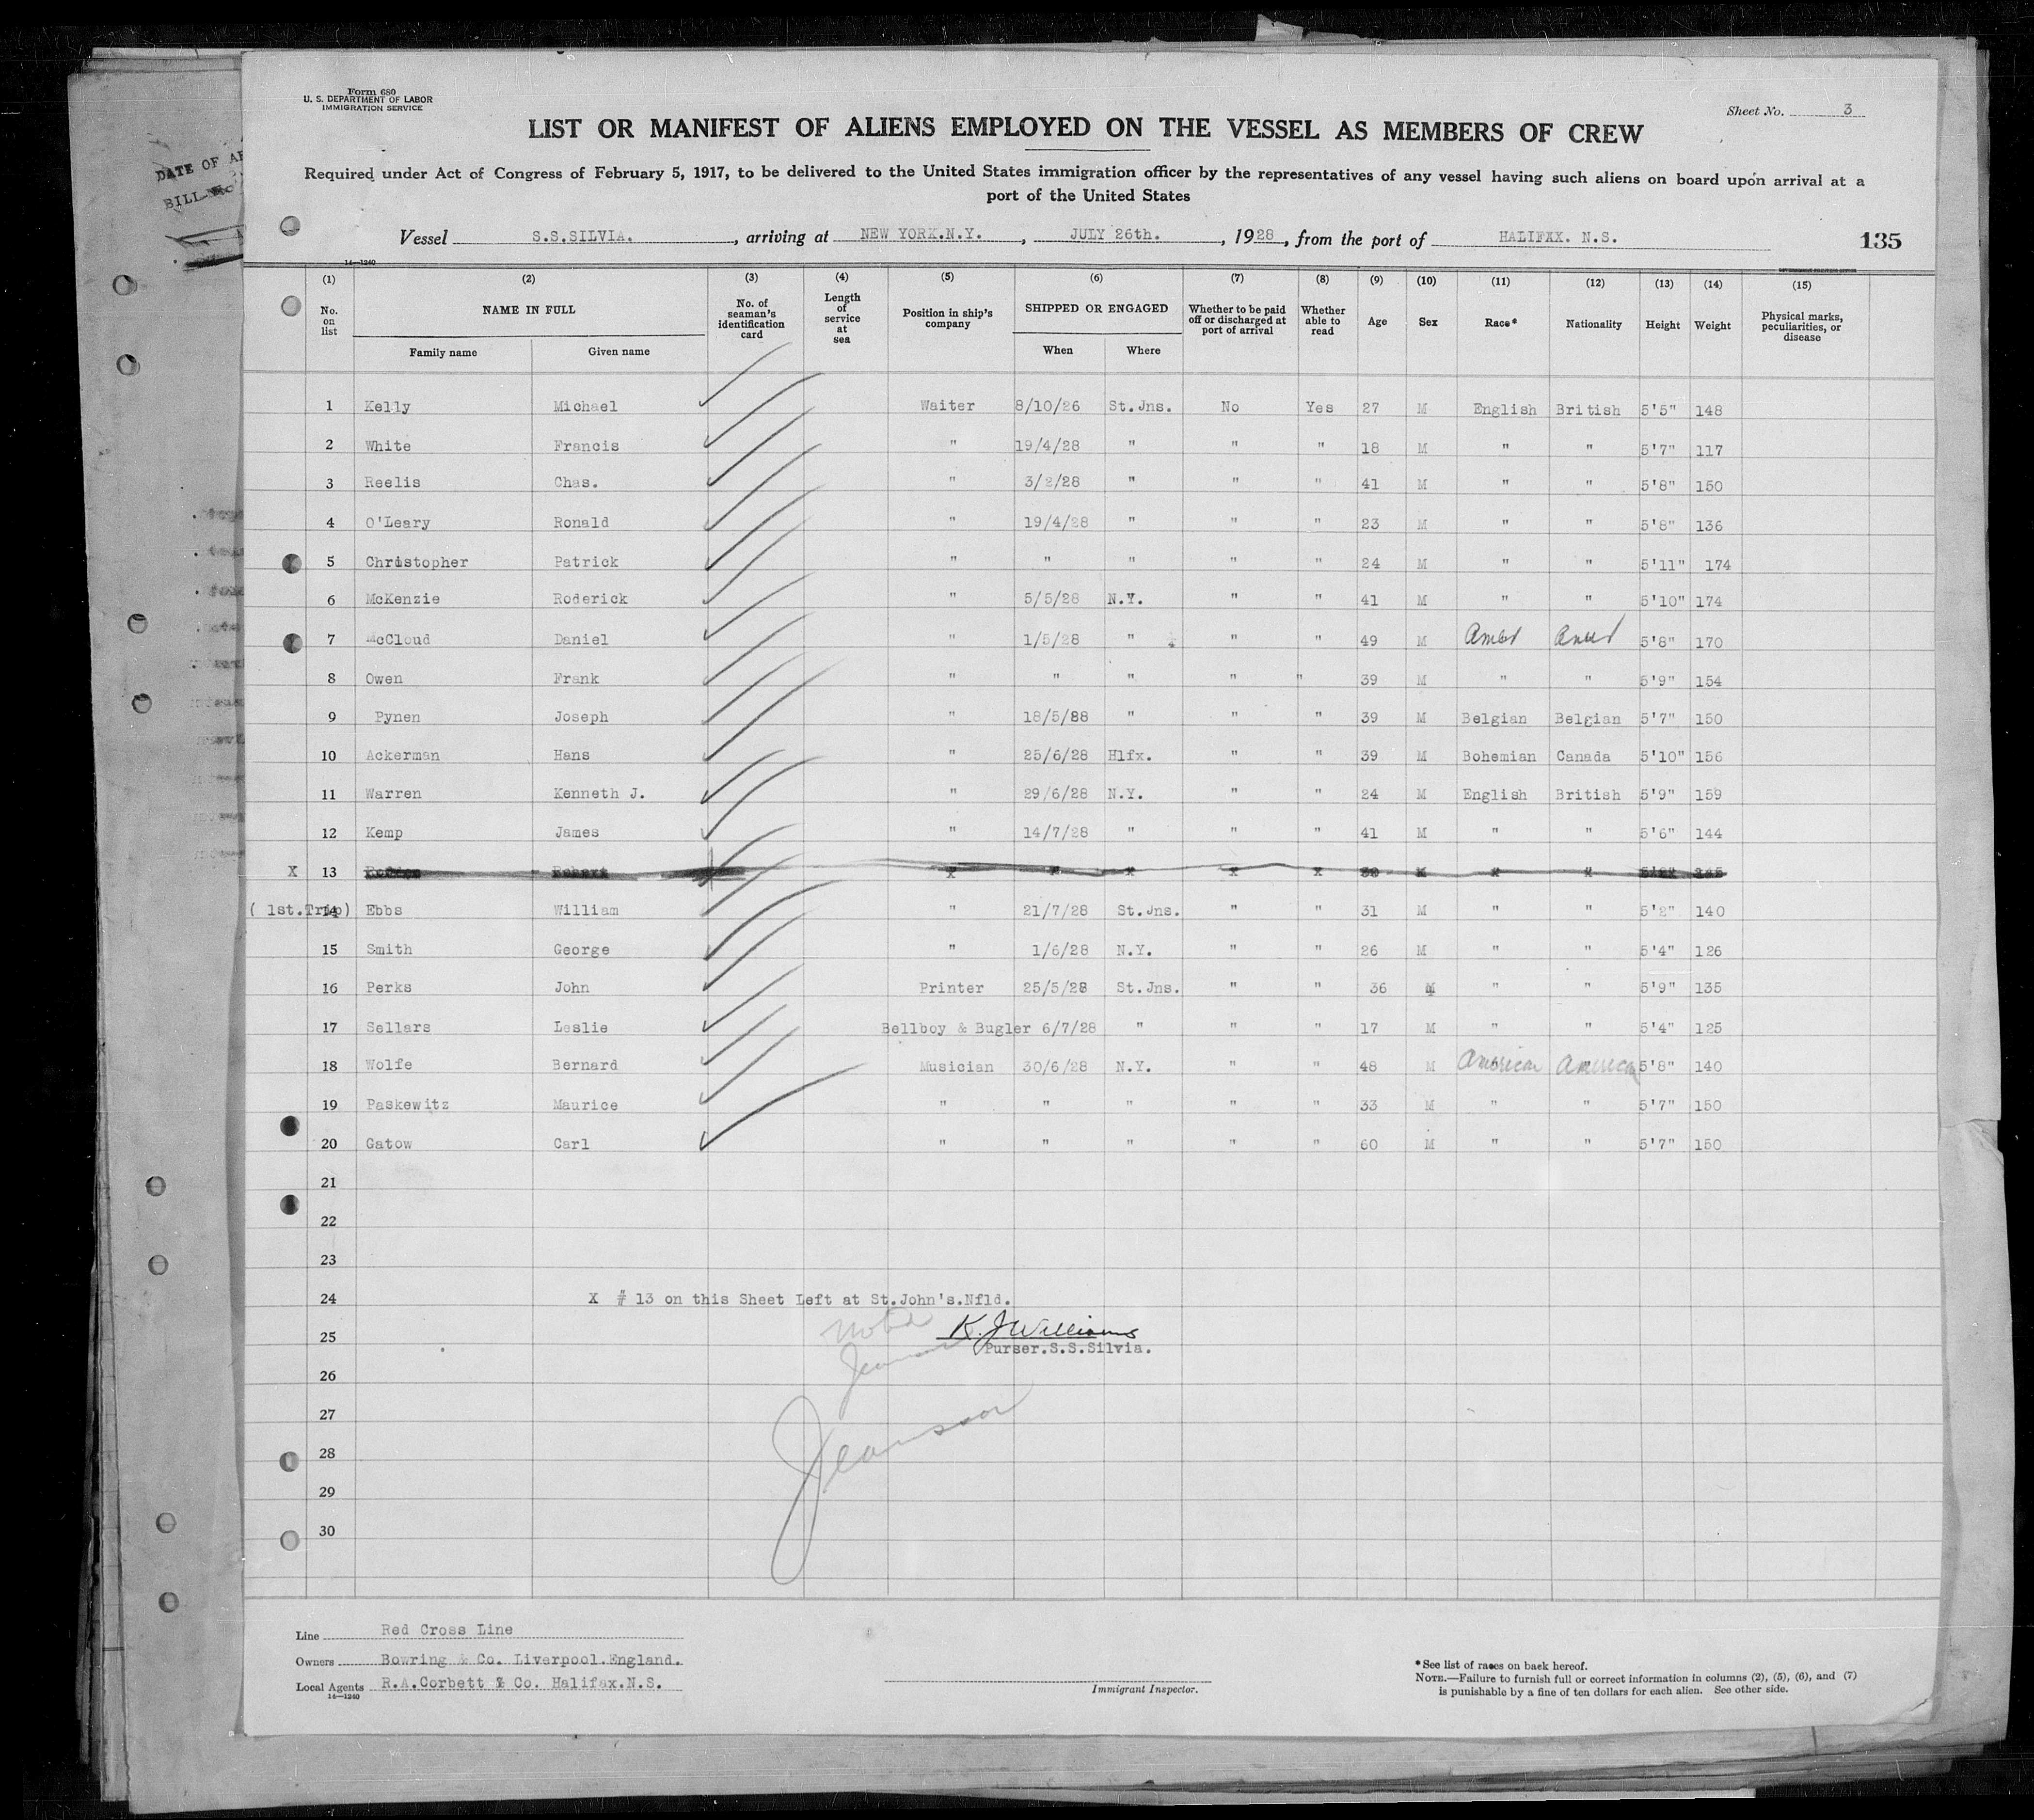 Form 680
U. S. DEPARTMENT OF LABOR
IMMIGRATION SERVICE
Sheet No. 3
LIST OR MANIFEST OF ALIENS EMPLOYED ON THE VESSEL AS MEMBERS OF CREW
Required under Act of Congress of February 5, 1917, to be delivered to the United States immigration officer by the representatives of any vessel having such aliens on board upon arrival at a
port of the United States
Vessel S.S.SILVIA., arriving at NEW YORK.N.Y., JULY 26th., 1928, from the port of HALIFAX. N.S. 135
14—1240
(1) (2) (3) (4) (5) (6) (7) (8) (9) (10) (11) (12) (13) (14) (15)
No. on list NAME IN FULL Family name Given name No. of seaman's identification card Length of service at sea Position in ship's company SHIPPED OR ENGAGED When Where Whether to be paid off or discharged at port of arrival Whether able to read Age Sex Race* Nationality Height Weight Physical marks, peculiarities, or disease
1 Kelly Michael Waiter 8/10/26 St.Jns. No Yes 27 M English British 5'5" 148
2 White Francis " 19/4/28 " " " 18 M " " 5'7" 117
3 Reelis Chas. " 3/2/28 " " " 41 M " " 5'8" 150
4 O'Leary Ronald " 19/4/28 " " " 23 M " " 5'8" 136
5 Christopher Patrick " " " " " 24 M " " 5'11" 174
6 McKenzie Roderick " 5/5/28 N.Y. " " 41 M " " 5'10" 174
7 McCloud Daniel " 1/5/28 " " " 49 M Amer Amer 5'8" 170
8 Owen Frank " " " " " 39 M " " 5'9" 154
9 Pynen Joseph " 18/5/28 " " " 39 M Belgian Belgian 5'7" 150
10 Ackerman Hans " 25/6/28 Hlfx. " " 39 M Bohemian Canada 5'10" 156
11 Warren Kenneth J. " 29/6/28 N.Y. " " 24 M English British 5'9" 159
12 Kemp James " 14/7/28 " " " 41 M " " 5'6" 144
X 13
( 1st.Trip) 14 Ebbs William " 21/7/28 St.Jns. " " 31 M " " 5'2" 140
15 Smith George " 1/6/28 N.Y. " " 26 M " " 5'4" 126
16 Perks John Printer 25/5/28 St.Jns. " " 36 M " " 5'9" 135
17 Sellars Leslie Bellboy & Bugler 6/7/28 " " " 17 M " " 5'4" 125
18 Wolfe Bernard Musician 30/6/28 N.Y. " " 48 M American American 5'8" 140
19 Paskewitz Maurice " " " " " 33 M " " 5'7" 150
20 Gatow Carl " " " " " 60 M " " 5'7" 150
21
22
23
24 X # 13 on this Sheet Left at St.John's.Nfld.
25 noted K.J Williams
Purser.S.S.Silvia.
26
27
28
29
30
Line Red Cross Line
Owners Bowring & Co. Liverpool.England.
Local Agents R.A.Corbett & Co. Halifax.N.S.
14—1240
Immigrant Inspector.
*See list of races on back hereof.
NOTE.—Failure to furnish full or correct information in columns (2), (5), (6), and (7)
is punishable by a fine of ten dollars for each alien. See other side.
DATE OF
BILL